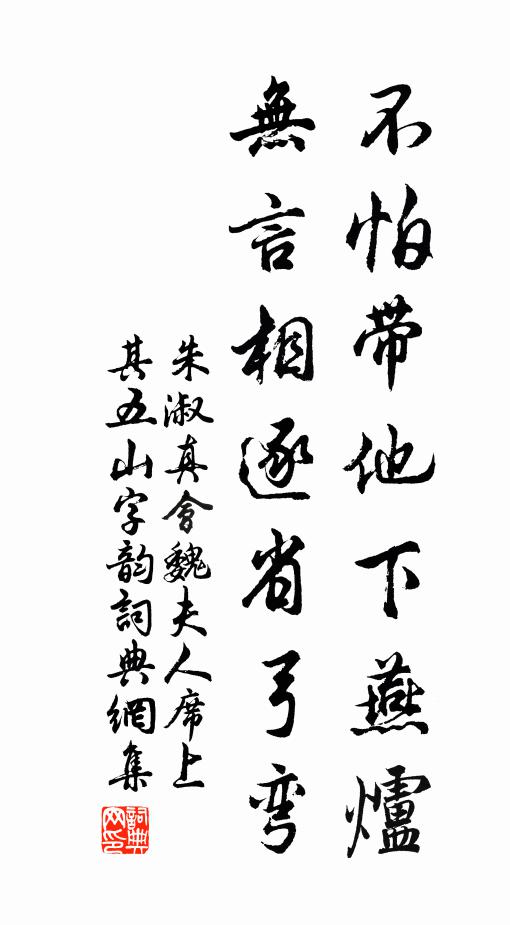 不怕带他下燕爐
無言相逐省弓弯
朱淑真會魏夫人席上
其五山字韵詞典網集
詞典網印